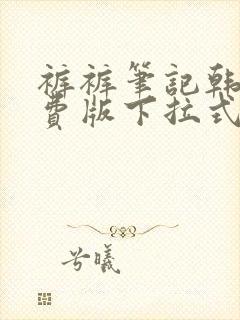 裤裤筆記韩
費版下拉式
兮曦